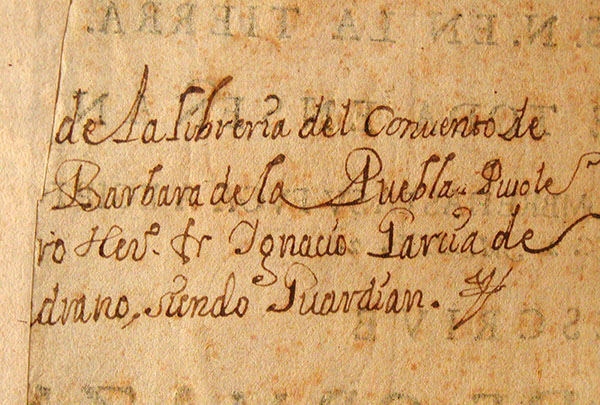 de la libreria del Convento de
Barbara de la Puebla. Pusole
ro Herº. fr Ignacio Garcia de
drano, siendo Guardian.